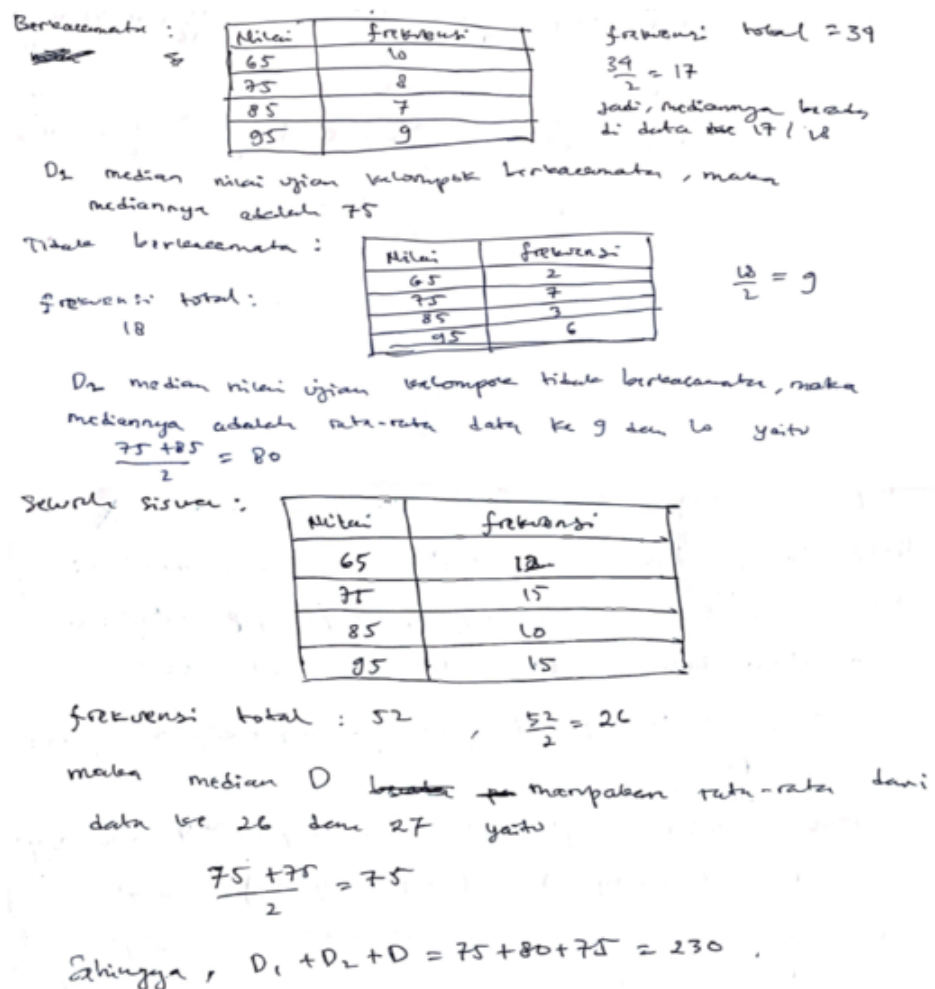 Berkacamata :
Nilai frekuensi
65 10
75 8
85 7
95 9
frekuensi total = 34
34/2 = 17
Jadi, mediannya berada
di data ke 17 / 18
D1 median nilai ujian kelompok berkacamata, maka
mediannya adalah 75
Tidak berkacamata :
frekuensi total :
18
Nilai frekuensi
65 2
75 7
85 3
95 6
18/2 = 9
D2 median nilai ujian kelompok tidak berkacamata, maka
mediannya adalah rata-rata data ke 9 dan 10 yaitu
(75 + 85)/2 = 80
Seluruh siswa :
Nilai frekuensi
65 12
75 15
85 10
95 15
frekuensi total : 52 , 52/2 = 26
maka median D merupakan rata-rata dari
data ke 26 dan 27 yaitu
(75 + 75)/2 = 75
Sehingga, D1 + D2 + D = 75 + 80 + 75 = 230 .